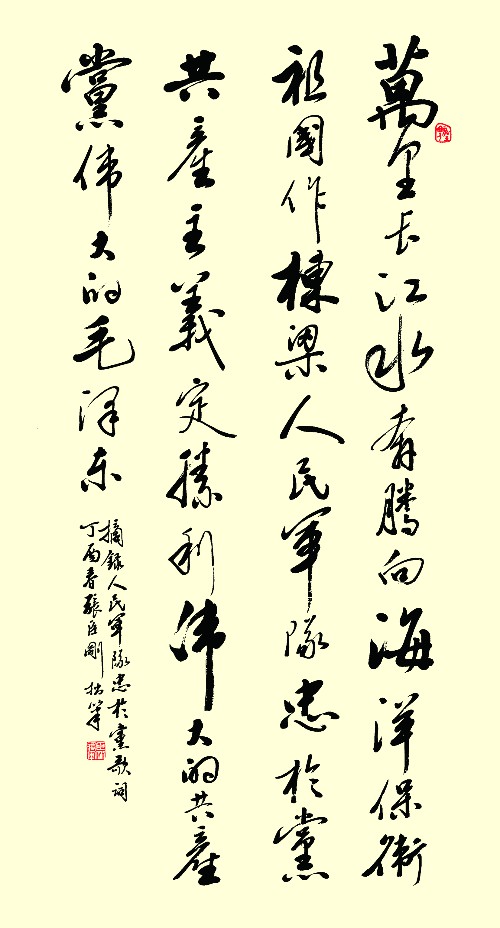 萬里長江水奔騰向海洋保衛
祖國作棟梁人民軍隊忠於黨
共產主義定勝利偉大的共產
黨偉大的毛泽东
摘錄人民軍隊忠於黨歌詞
丁酉春張臣剛拙筆